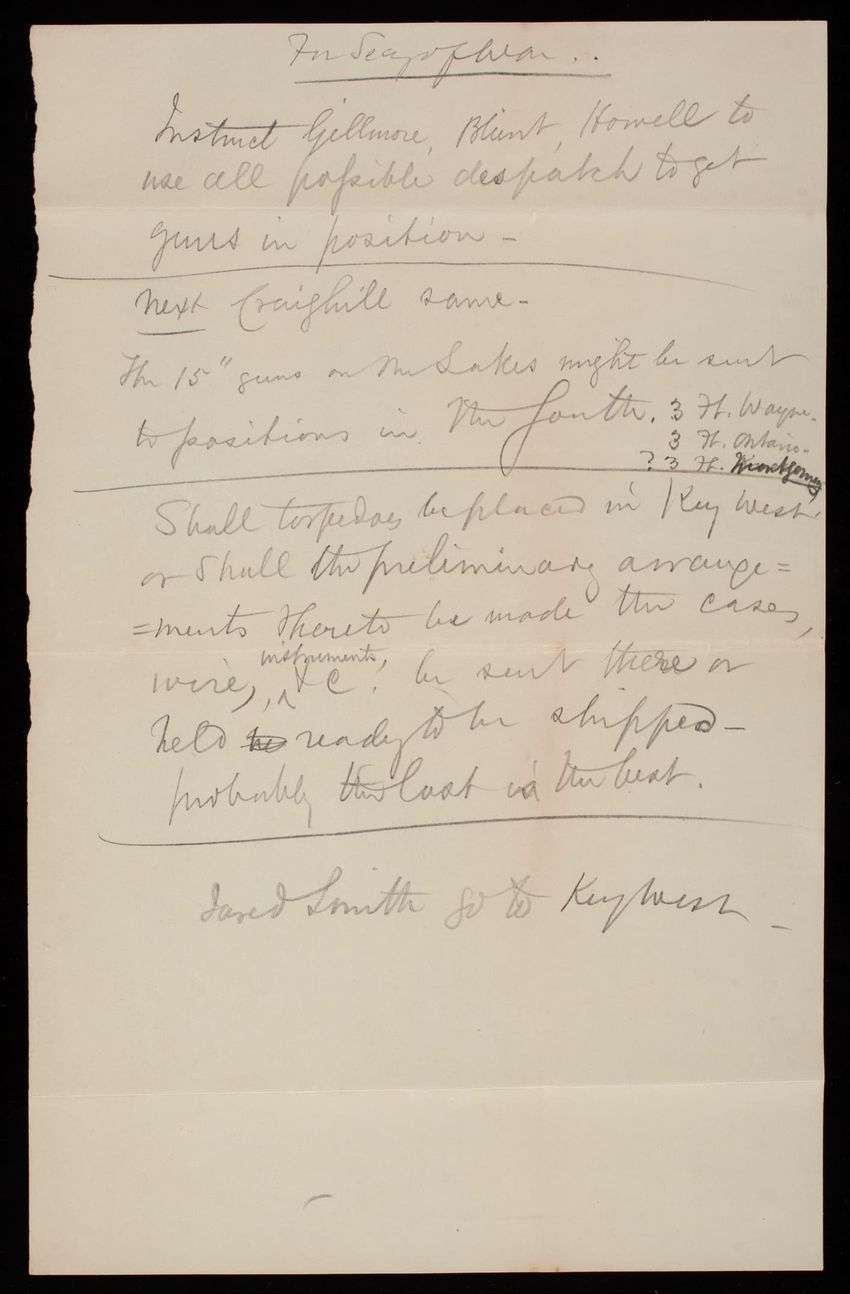 For Secy of War . .
Instruct Gillmore, Blunt, Howell to
use all possible despatch to get
guns in position -
Next Craighill same -
The 15" guns on the Lakes might be sent
to positions in the South. 3 Ft. Wayne -
3 Ft. Ontario -
? 3 Ft. Montgomery
Shall torpedoes be placed in Key West,
or Shall the preliminary arrange=
=ments thereto be made the cases,
wire, instruments, &C. be sent there or
held be ready to be shipped -
probably the last is the best.
Jared Smith go to Key West -